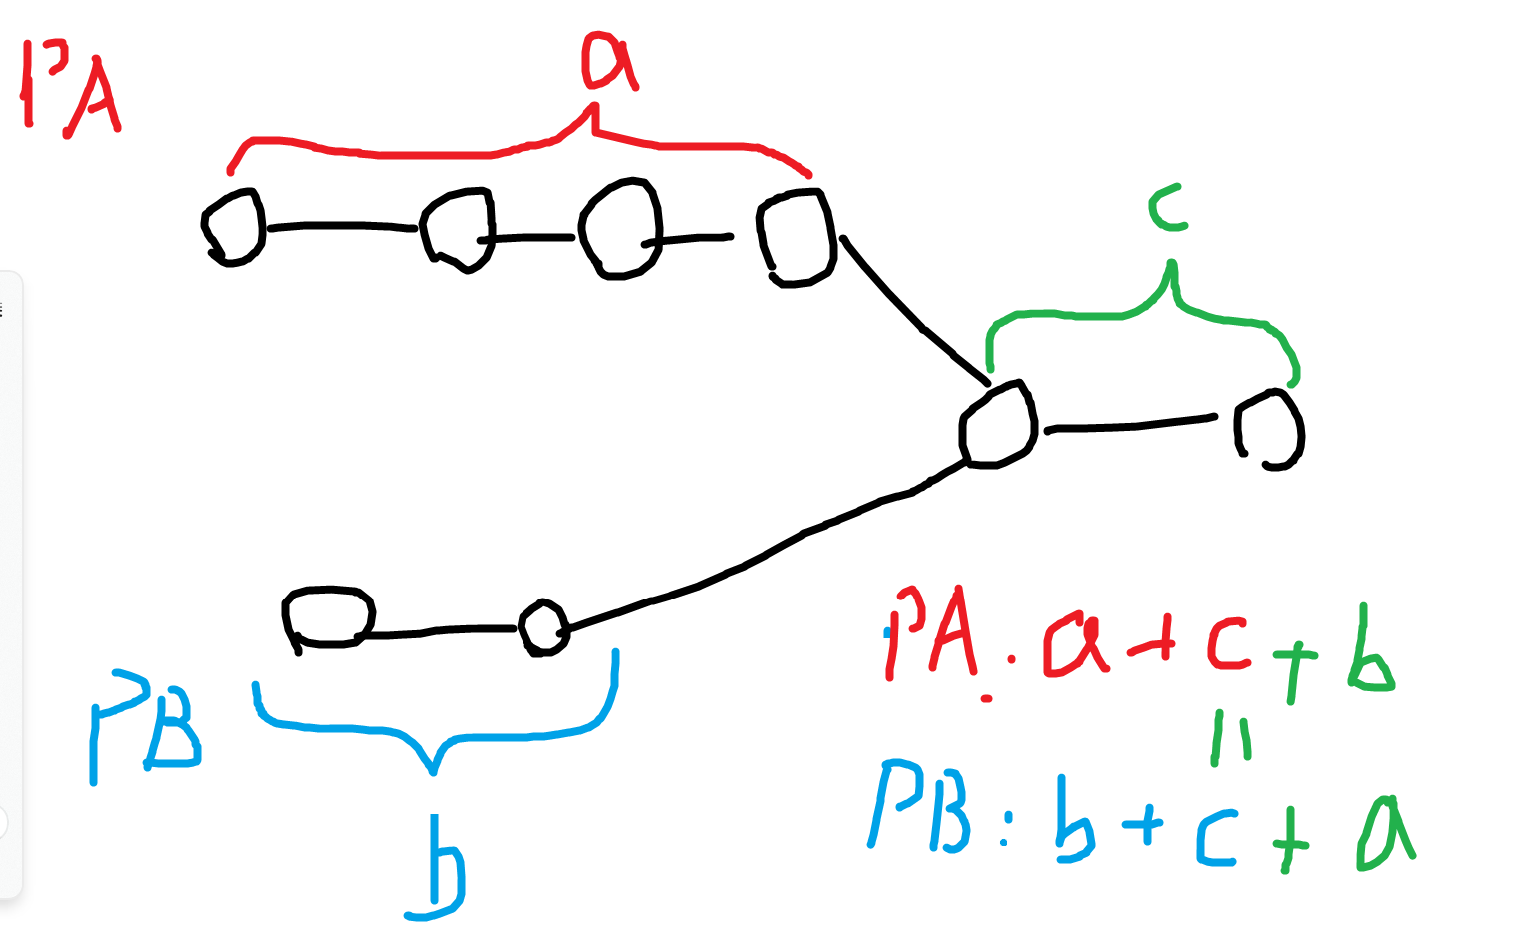 PA
a
c
PB
b
PA: a + c + b
=
PB: b + c + a